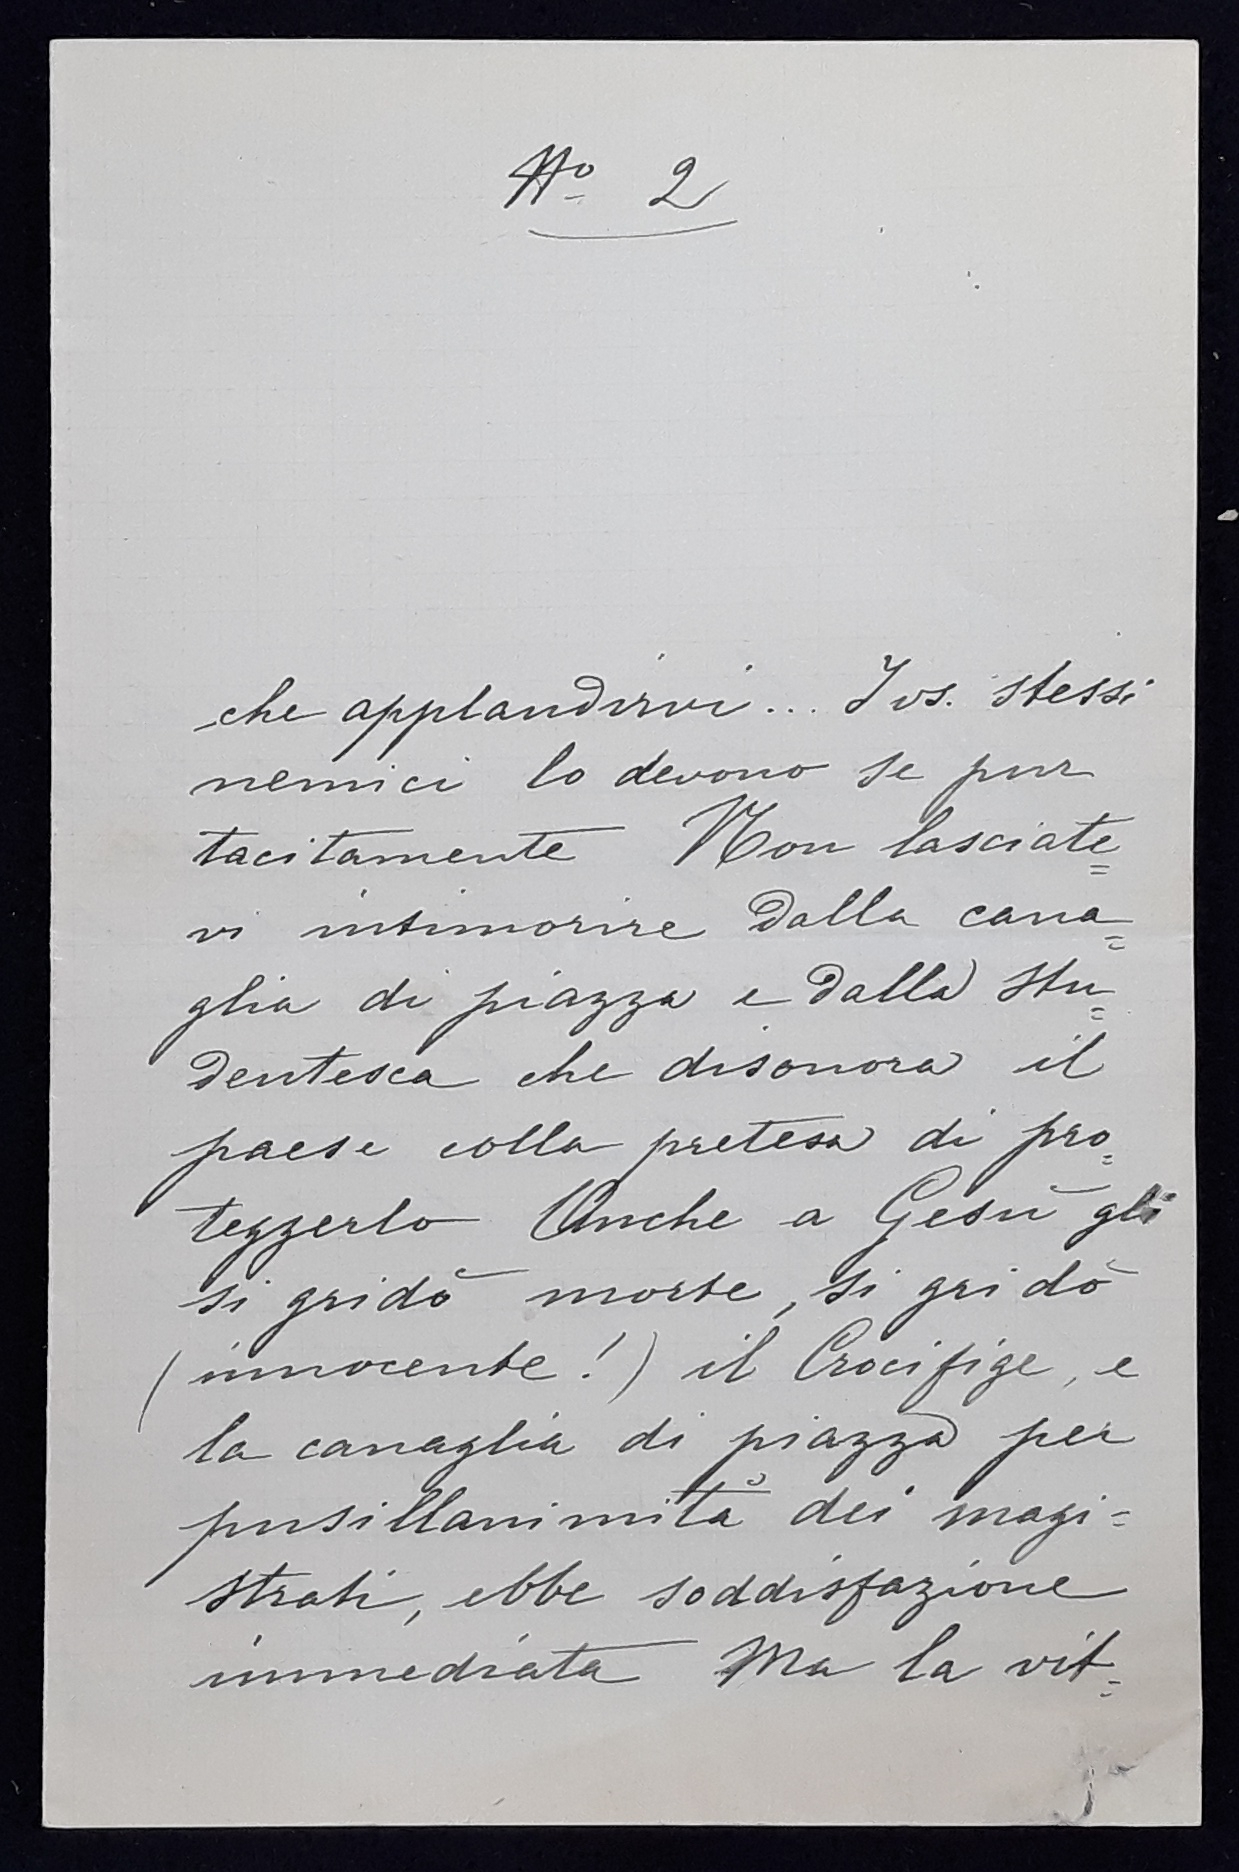 No 2
che applaudirvi... I vs. stessi
nemici lo devono se pur
tacitamente Non lasciate=
vi intimorire dalla cana=
glia di piazza e dalla stu=
dentesca che disonora il
paese colla pretesa di pro=
teggerlo Anche a Gesù gli
si gridò morte, si gridò
(innocente!) il Crocifige, e
la canaglia di piazza per
pusillanimità dei magi=
strati, ebbe soddisfazione
immediata Ma la vit=